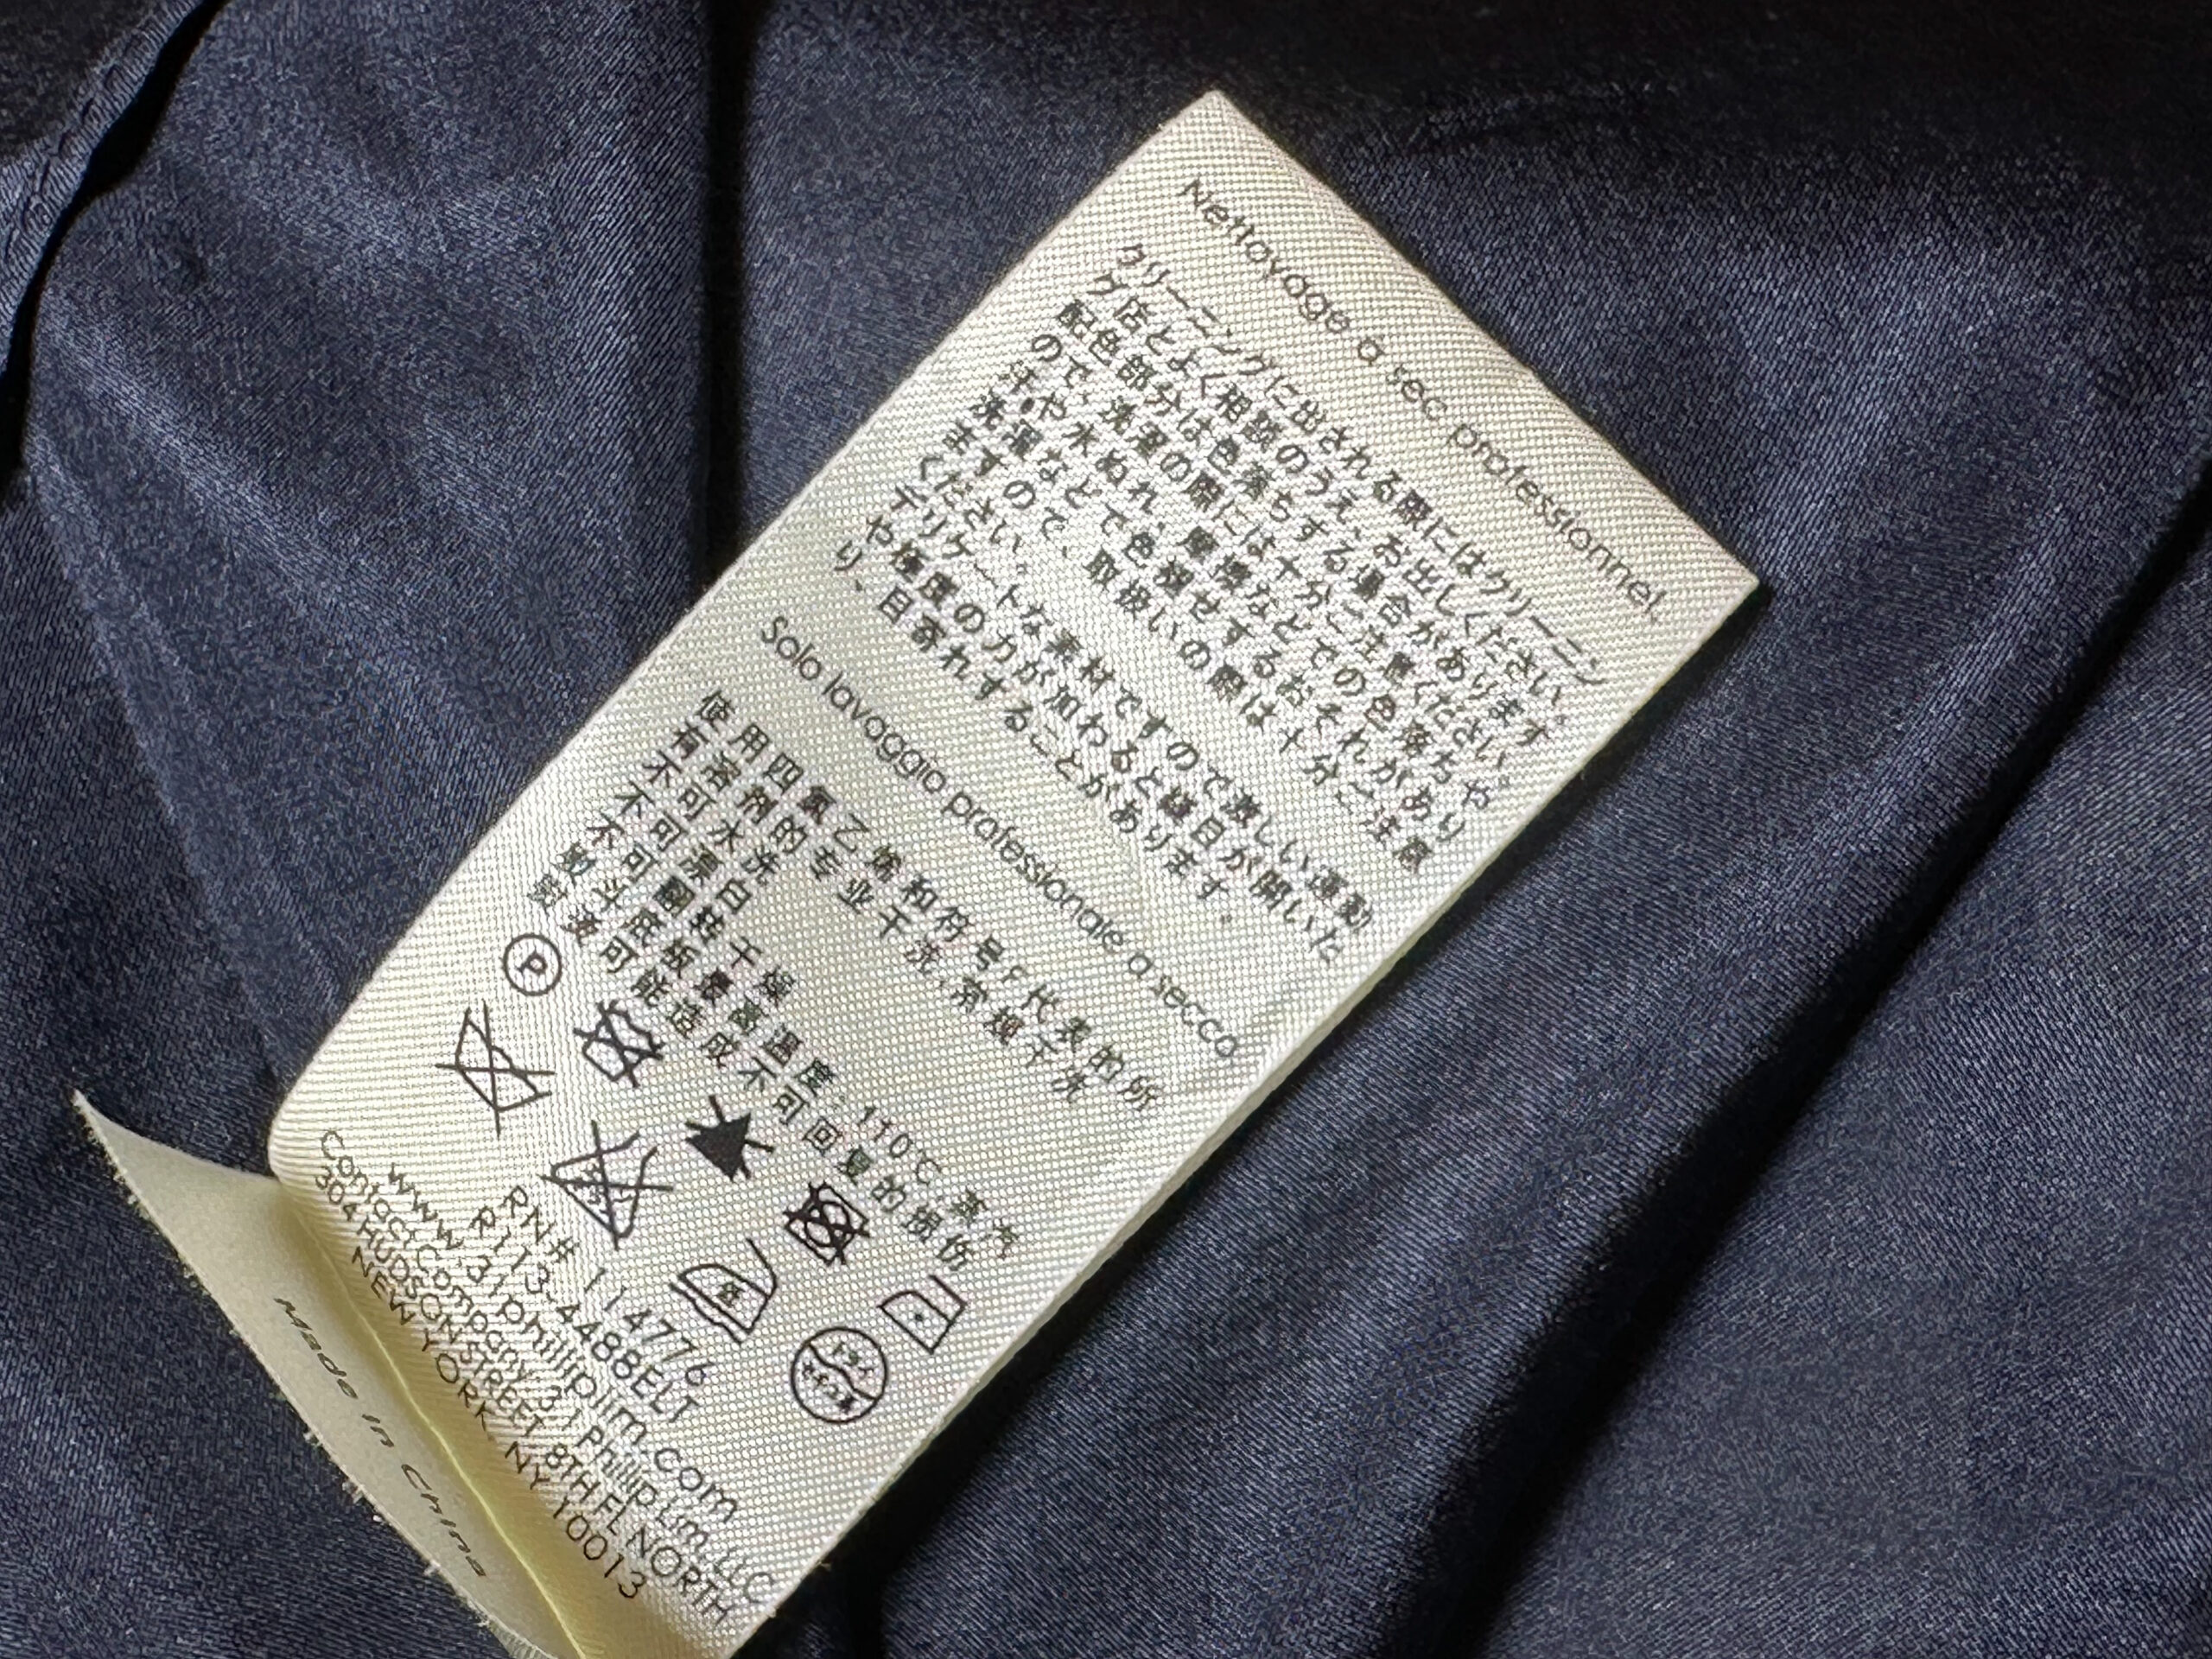 Nettoyage a sec professionnel.
クリーニングに出される際にはクリーニン
グ店とよく相談のうえ、お出しください。
配色部分は色落ちする場合があります
ので、洗濯の際には十分ご注意ください。
汗や水ぬれ、摩擦などでの色落ちや
洗濯などで色褪せするおそれがあり
ますので、取扱いの際は十分ご注意
ください。
デリケートな素材ですので激しい運動
や極度の力が加わると縫目が開いた
り、目あれすることがあります。
Solo lavaggio professionale a secco
使用四氯乙烯和符号F代表的所
有溶剂的专业干洗,常规干洗
不可水洗
不可漂白
不可翻转干燥
熨斗底板最高温度:110℃,蒸汽
熨烫可能造成不可回复的损伤
P
RN# 114776
R113-4488ELT
www.31philliplim.com
Contact Company:3.1 Phillip Lim,LLC
304 HUDSON STREET 8TH FL NORTH
NEW YORK, NY 10013
Made In China